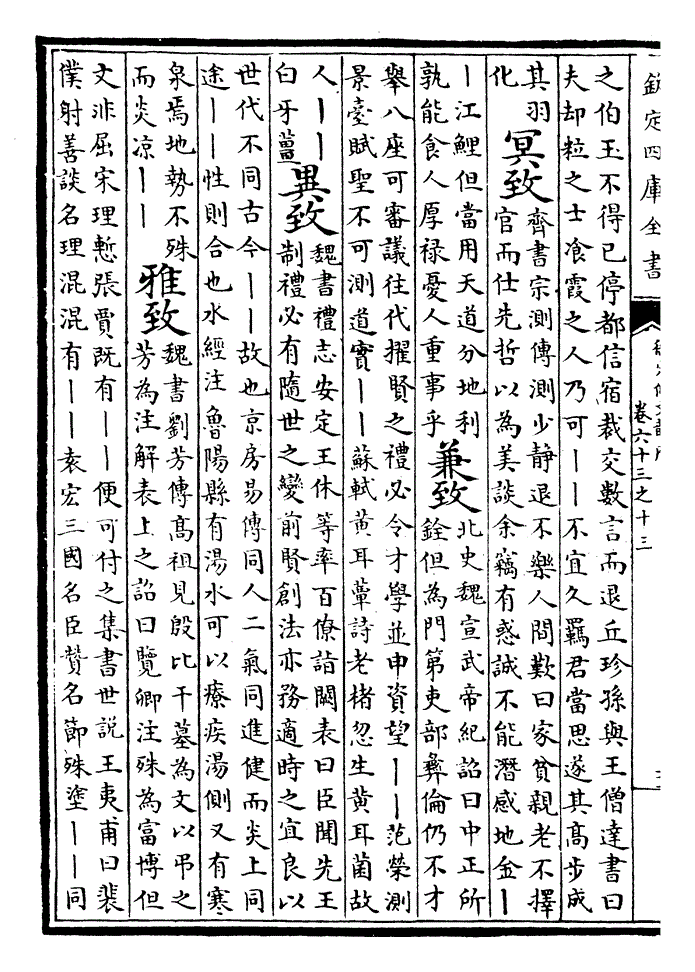 欽定四庫全書
卷六十三之十三
之伯玉不得已停都信宿裁交數言而退丘珍孫與王僧達書曰
夫却粒之士飡霞之人乃可——不宜久羈君當思遂其高步成
其羽
化
冥致
齊書宗測傳測少静退不樂人間歎曰家貧親老不擇
官而仕先哲以為美談余竊有惑誠不能潛感地金—
—江鯉但當用天道分地利
孰能食人厚禄憂人重事乎
兼致
北史魏宣武帝紀詔曰中正所
銓但為門第吏部彝倫仍不才
舉八座可審議往代擢賢之禮必令才學並申資望——范榮測
景臺賦聖不可測道實——蘇軾黄耳蕈詩老楮忽生黄耳菌故
人——
白牙薑
異致
魏書禮志安定王休等率百僚詣闕表曰臣聞先王
制禮必有隨世之變前賢創法亦務適時之宜良以
世代不同古今——故也京房易傳同人二氣同進健而炎上同
途——性則合也水經注魯陽縣有湯水可以療疾湯側又有寒
泉焉地勢不殊
而炎凉——
雅致
魏書劉芳傳高祖見殷比干墓為文以弔之
芳為注解表上之詔曰覽卿注殊為富博但
文非屈宋理慙張賈既有——便可付之集書世說王夷甫曰裴
僕射善談名理混混有——袁宏三國名臣贊名節殊塗——同